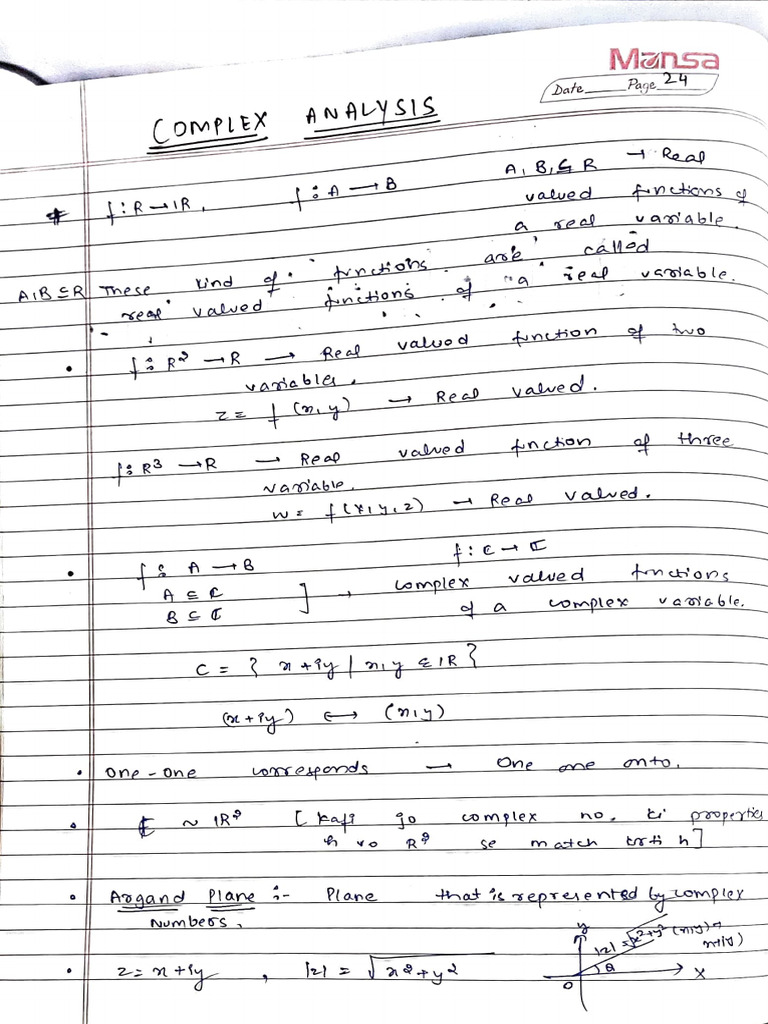 Mansa
Date Page 24
COMPLEX ANALYSIS
* f : R → IR, f : A → B A, B, ⊆ R → Real
valued functions of
a real variable.
A, B ⊆ R These kind of functions are called
real valued functions of a real variable.
• f : R² → R → Real valued function of two
variables.
z = f (x, y) → Real valued.
f : R³ → R → Real valued function of three
variable.
w = f(x, y, z) → Real valued.
• f : A → B f : C → ℂ
A ⊆ ℂ ] → complex valued functions
B ⊆ ℂ of a complex variable.
C = { x + iy / x, y ∈ IR }
(x + iy) ↔ (x, y)
• One-one corresponds → One one onto.
• ℂ ~ IR² [ Kafi jo complex no. ki properties
h vo R² se match krti h ]
• Argand Plane :- Plane that is represented by complex
Numbers,
• z = x + iy , |z| = √x² + y²
y |z| = √x² + y² (x, y) =
x + iy)
θ
O X